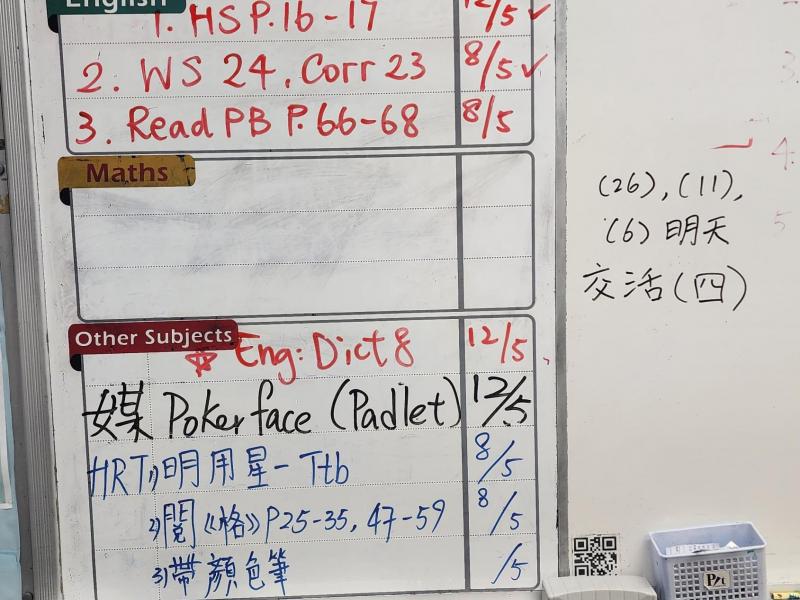 English
1. HS P.16-17 12/5 ✓
2. WS 24, Corr 23 8/5 ✓
3. Read PB P.66-68 8/5
Maths
Other Subjects
☆ Eng: Dict 8 12/5
媒 Poker face (Padlet) 12/5
HRT 1) 明用星一 Ttb 8/5
2) 閱《格》P25-35, 47-59 8/5
3) 帶顏色筆 /5
(26), (11),
(6) 明天
交活(四)